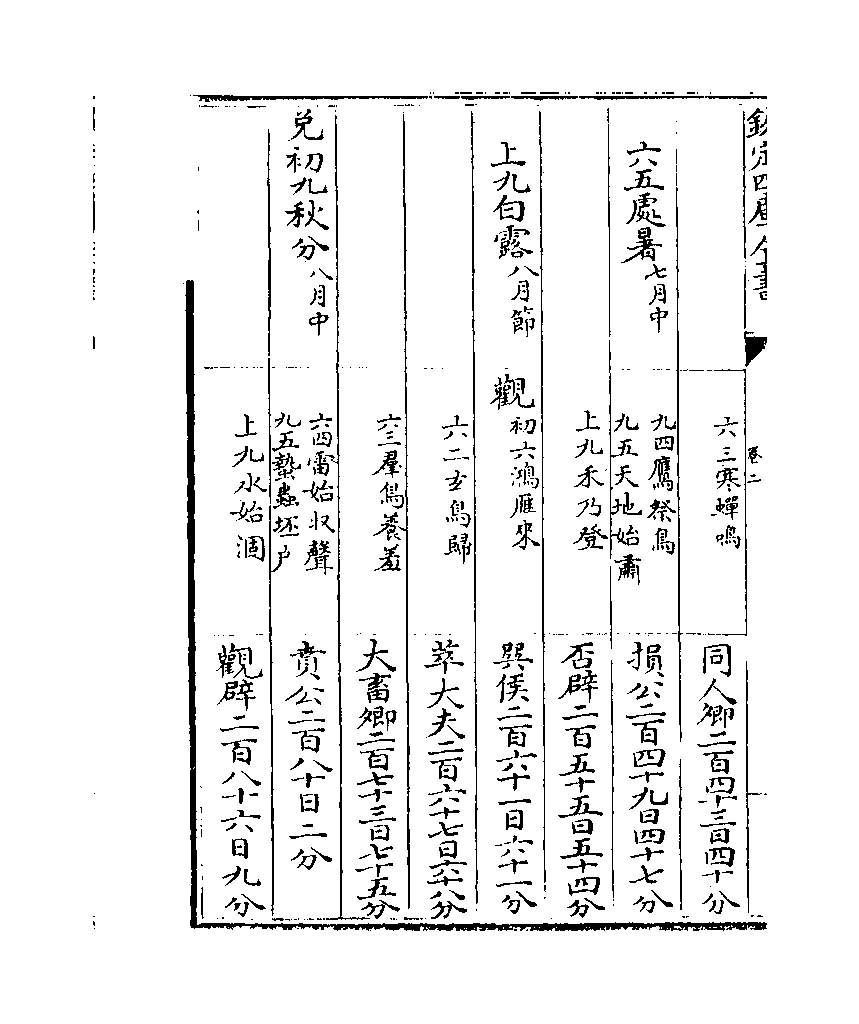 欽定四庫全書
卷二
六三寒蟬鳴
同人卿二百四十三日四十分
六五處暑七月中
九四鷹祭鳥
九五天地始肅
損公二百四十九日四十七分
上九禾乃登
否辟二百五十五日五十四分
上九白露八月節
觀
初六鴻雁來
巽侯二百六十一日六十一分
六二玄鳥歸
萃大夫二百六十七日六十八分
六三羣鳥養羞
大畜卿二百七十三日七十五分
兌初九秋分八月中
六四雷始收聲
九五蟄蟲坯戶
賁公二百八十日二分
上九水始涸
觀辟二百八十六日九分